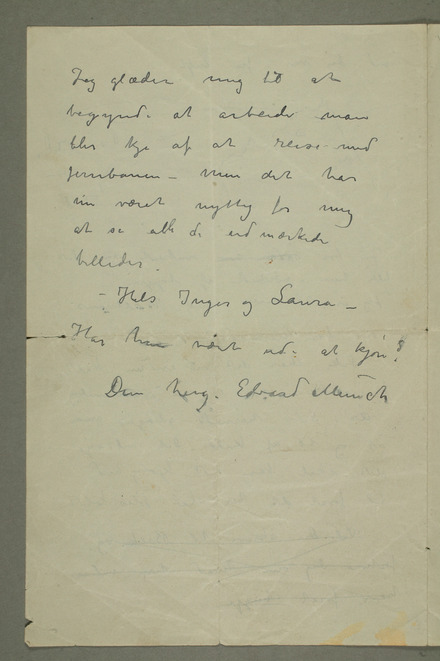 Jeg glæder mig til at
begynde at arbeide man
blir kje af at reise med
jernbanen – men det har
nu været nyttig for mig
at se alle de udmærkede
billeder.
– Hils Inger og Laura –
Har hun vært ude at kjøre?
Din heng. Edvard Munch